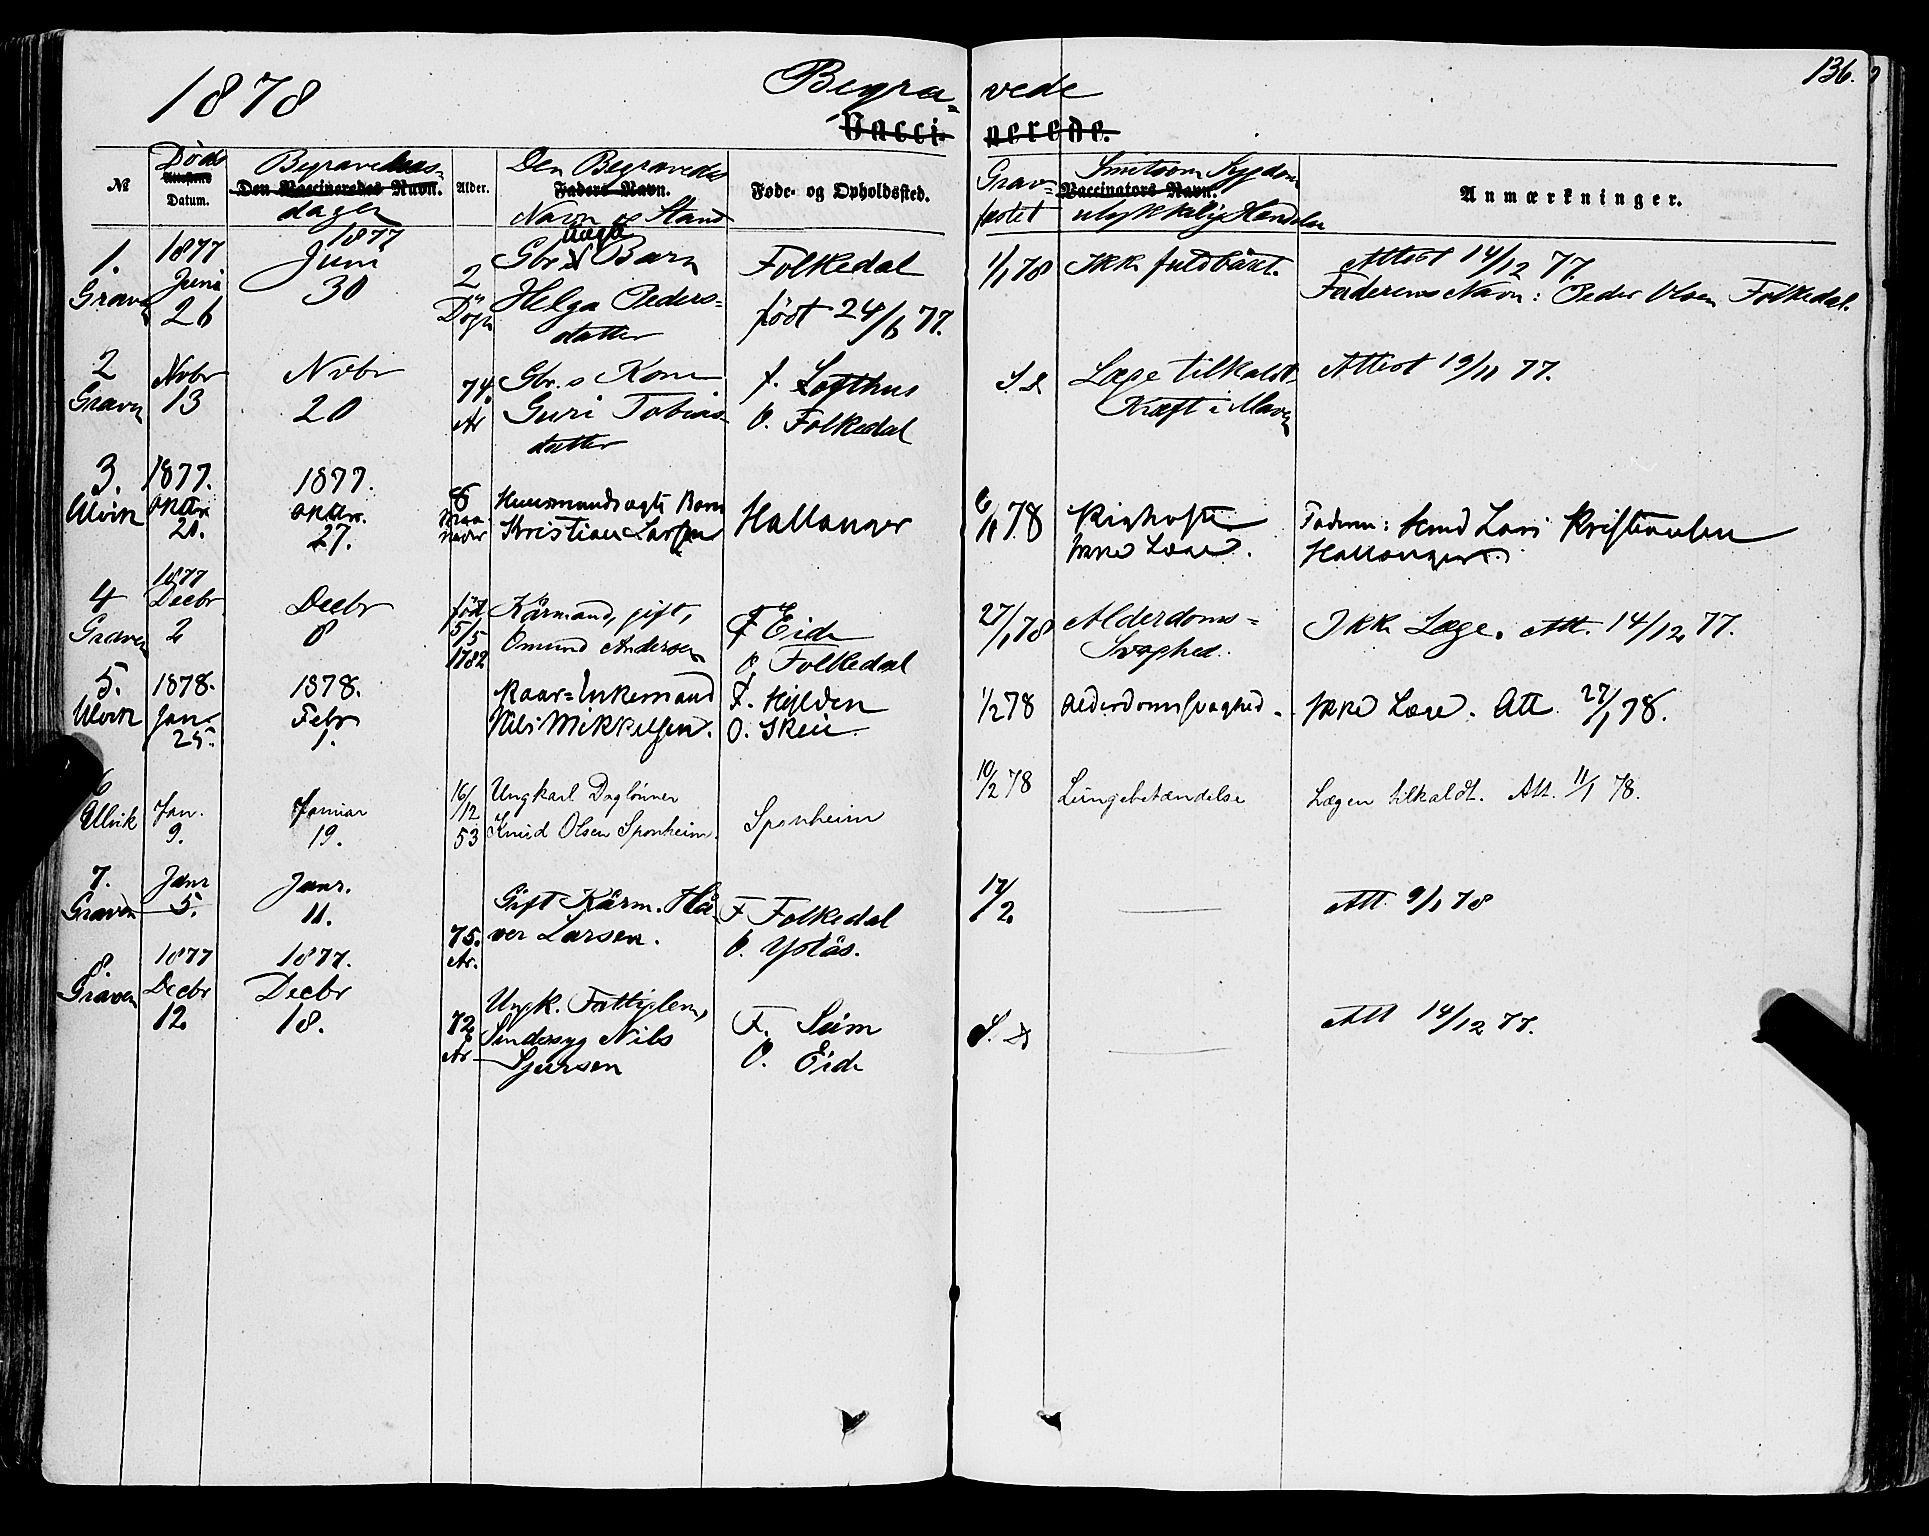 1878 Begra- vede 136.
Vacci- nerede.
№ Døds Attestens Datum. Begravelses- Den Vaccineredes Navn. dagen Alder. Den Begravedes Faders Navn. Navn og Stand Føde- og Opholdssted. Grav- fæstet Smitsom Sygdom Vaccinators Navn. ulykkelig Hændelse Anmærkninger.
1. 1877 1877 uægte
Graven Juni 26 Juni 30 2 Døgn Gbr. Barn Folkedal 1/1 78 Ikke fuldbåret. Attest 14/12 77.
Helga Peders- født 24/6 77. Faderens Navn: Peder Olsen Folkedal.
datter
2 Novbr Novbr 74 Gbr.s Kone f. Lofthus S. d. Læge tilkaldt. Attest 19/11 77.
Graven 13 20 Ar Guri Tobias- O. Folkedal Kræft i Maven
datter
3. 1877. 1877.
Ulvik Oktbr. 21. Oktbr. 27. 8 Maaneder Huusmands ægte Barn Hallanger 6/1 78 Kighoste Faderen: Hmd Lars Kristiansen
Kristian Larsen Ikke Læge. Hallanger.
4 1877 Decbr Decbr født Kårmand, gift, F Eide 27/1 78 Alderdoms- Ikke Læge. Att. 14/12 77.
Graven 2 8 5/5 1782 Omund Andersen O Folkedal Svaghed.
5. 1878. 1878. Kaar-Enkemand F. Hylden 1/2 78 Alderdomssvaghed. Ikke Læge. Att. 27/1 78.
Ulvik Janr 25. Febr 1. Nils Mikkelsen. O. Skeie
6 16/12 Ungkarl Daglønner 10/2 78 Lungebetændelse Lægen tilkaldt. Att. 11/1 78.
Ulvik Jan. 9. Januar 19. 53 Knud Olsen Sponheim. Sponheim
7. Janr Janr. Gift Kårm. Hå- F Folkedal 17/2 — Att. 9/1 78
Graven 5. 11. 75. Ar. ver Larsen. O. Ystås.
8 1877 1877.
Graven Decbr Decbr Ungk. Fattiglem, F. Seim S. D — Att 14/12 77.
12 18. 72 Ar Sindssyg Nils O. Eide
Sjursen